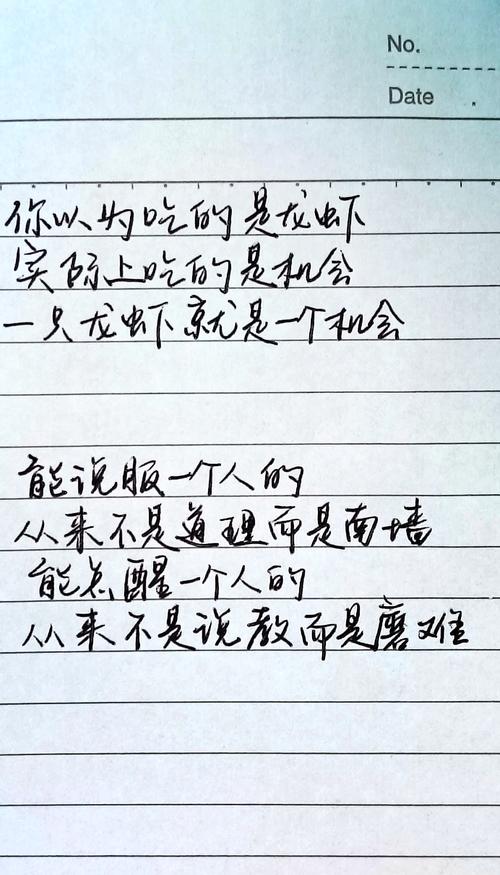 No.
Date .
你以为吃的是龙虾
实际上吃的是机会
一只龙虾就是一个机会
能说服一个人的
从来不是道理而是南墙
能点醒一个人的
从来不是说教而是磨难